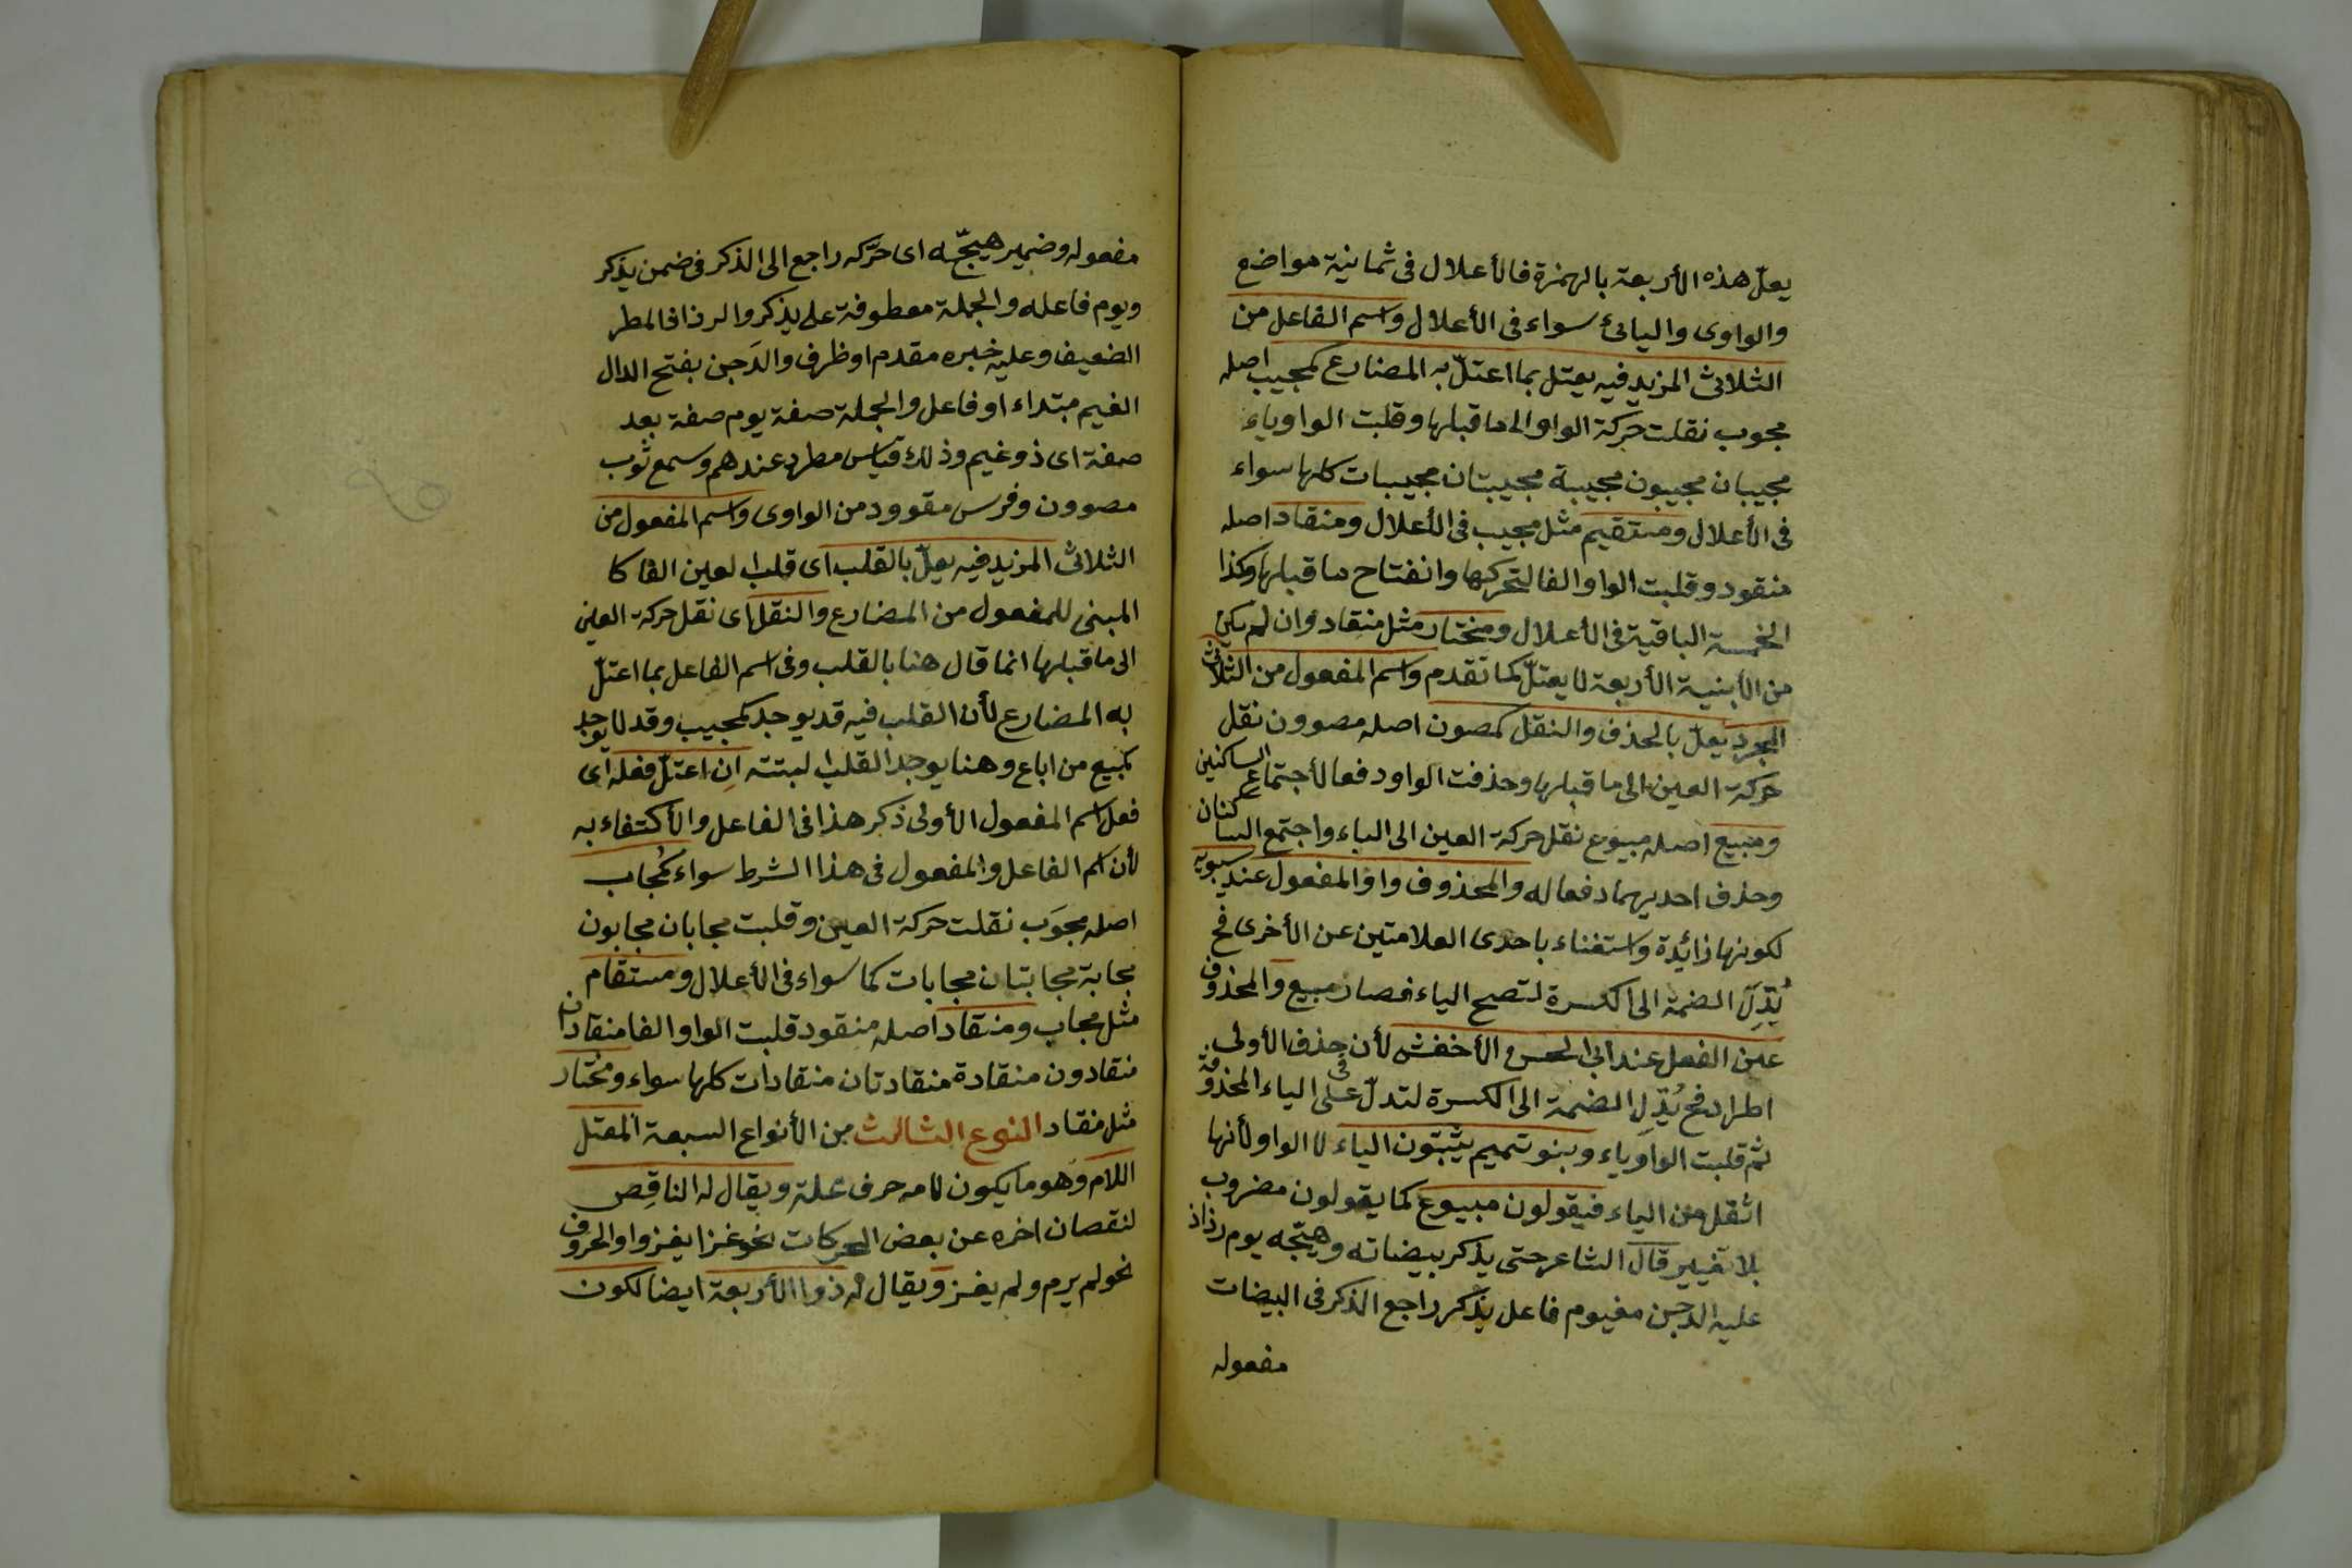 يعلّ هذه الأربعة بالهمزة فالأعلال فى ثمانية مواضع
والواوى واليائى سواء فى الأعلال واسم الفاعل من
الثلاثى المزيد فيه يعتل بما اعتلّ به المضارع كمجيب اصله
مجوب نقلت حركة الواو الى ما قبلها وقلبت الواو ياء
مجيبان مجيبون مجيبة مجيبتان مجيبات كلها سواء
فى الأعلال ومستقيم مثل مجيب فى الأعلال ومنقاد اصله
منقود وقلبت الواو الفا لتحركها وانفتاح ما قبلها وكذا
الخمسة الباقية فى الأعلال ومختار مثل منقاد وان لم يكن
من الأبنية الأربعة لا يعتلّ كما تقدم واسم المفعول من الثلاثى
المجرد يعلّ بالحذف والنقل كمصون اصله مصوون نقل
حركة العين الى ما قبلها وحذفت الواو دفعا لأجتماع الساكنين
ومبيع اصله مبيوع نقل حركة العين الى الباء واجتمع الساكنان
وحذف احديهما دفعا له والمحذوف واو المفعول عند سيبويه
لكونها زائدة واستغناء باحدى العلامتين عن الأخرى فح
بُدِّل الضمة الى الكسرة لتصح الياء فصار مبيع والمحذوف
عين الفعل عند ابى الحسن الأخفش لأن حذف الأولى
اطراد فح بُدِّل الضمة الى الكسرة لتدلّ على الياء المحذوفة
ثم قلبت الواو ياء وبنو تميم يثبتون الياء لا الواو لأنها
اثقل من الياء فيقولون مبيوع كما يقولون مضروب
بلا تغيير قال الشاعر حتى يذكر بيضاته وهيّجه يوم رذاذ
عليه الدجن مغيوم فاعل يذكر راجع الذكر فى البيضات
مفعوله
مفعوله وضمير هيّجه اى حرّكه راجع الى الذكر فى ضمن يذكر
ويوم فاعله والجملة معطوفة على يذكر والرذاذ المطر
الضعيف وعليه خبره مقدم او ظرف والدَجن بفتح الدال
الغيم مبتداء او فاعل والجملة صفة يوم صفة بعد
صفة اى ذو غيم وذلك قياس مطرد عندهم وسمع ثوب
مصوون وفرس مقوود من الواوى واسم المفعول من
الثلاثى المزيد فيه يعلّ بالقلب اى قلب العين الفا كا
المبنى للمفعول من المضارع والنقل اى نقل حركة العين
الى ما قبلها انما قال هنا بالقلب وفى اسم الفاعل بما اعتلّ
به المضارع لأن القلب فيه قد يوجد كمجيب وقد لا يوجد
كمبيع من اباع وهنا يوجد القلب البتة اِن اعتلّ فعله اى
فعل اسم المفعول الأولى ذكر هذا فى الفاعل والأكتفاء به
لأن اسم الفاعل والمفعول فى هذا الشرط سواء كمُجاب
اصله مجوَب نقلت حركة العين وقلبت مجابان مجابون
مجابة مجابتان مجابات كما سواء فى الأعلال ومستقام
مثل مجاب ومنقاد اصله منقود قلبت الواو الفا منقادان
منقادون منقادة منقادتان منقادات كلها سواء ومختار
مثل منقاد النوع الثالث من الأنواع السبعة المعتل
اللام وهو ما يكون لامه حرف علة ويقال له الناقِص
لنقصان اخره عن بعض الحركات نحو غزا يغزو او الحروف
نحو لم يرم ولم يغز ويقال له ذوا الأربعة ايضا لكون